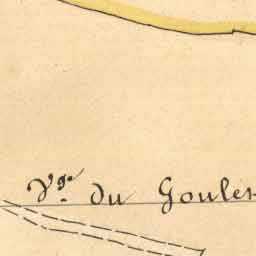 Vge. du Goules